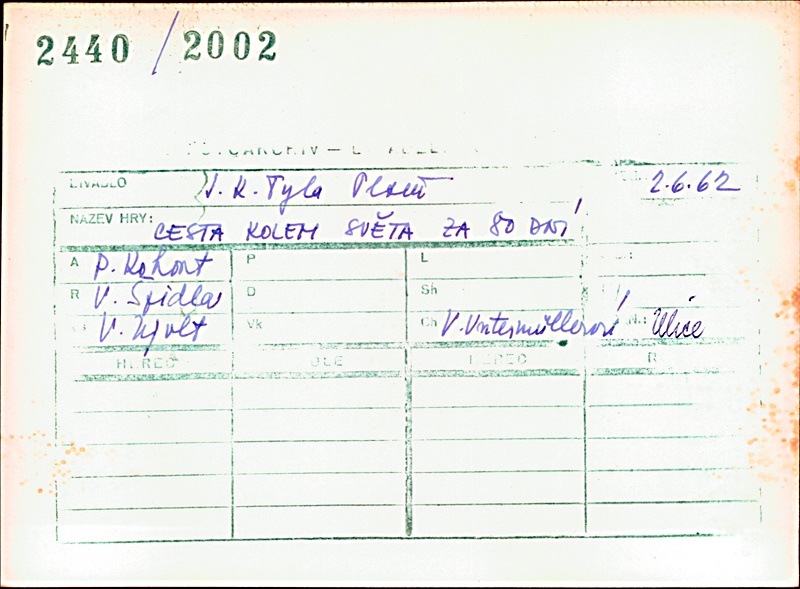 2440 / 2002
DIVADLO J. K. Tyla Plzeň 2.6.62
NÁZEV HRY: CESTA KOLEM SVĚTA ZA 80 DNÍ
A P. Kohout P L
R V. Špidla D Sh
V. Vk Ch V. Untermüllerová Ulice
HEREC HEREC R